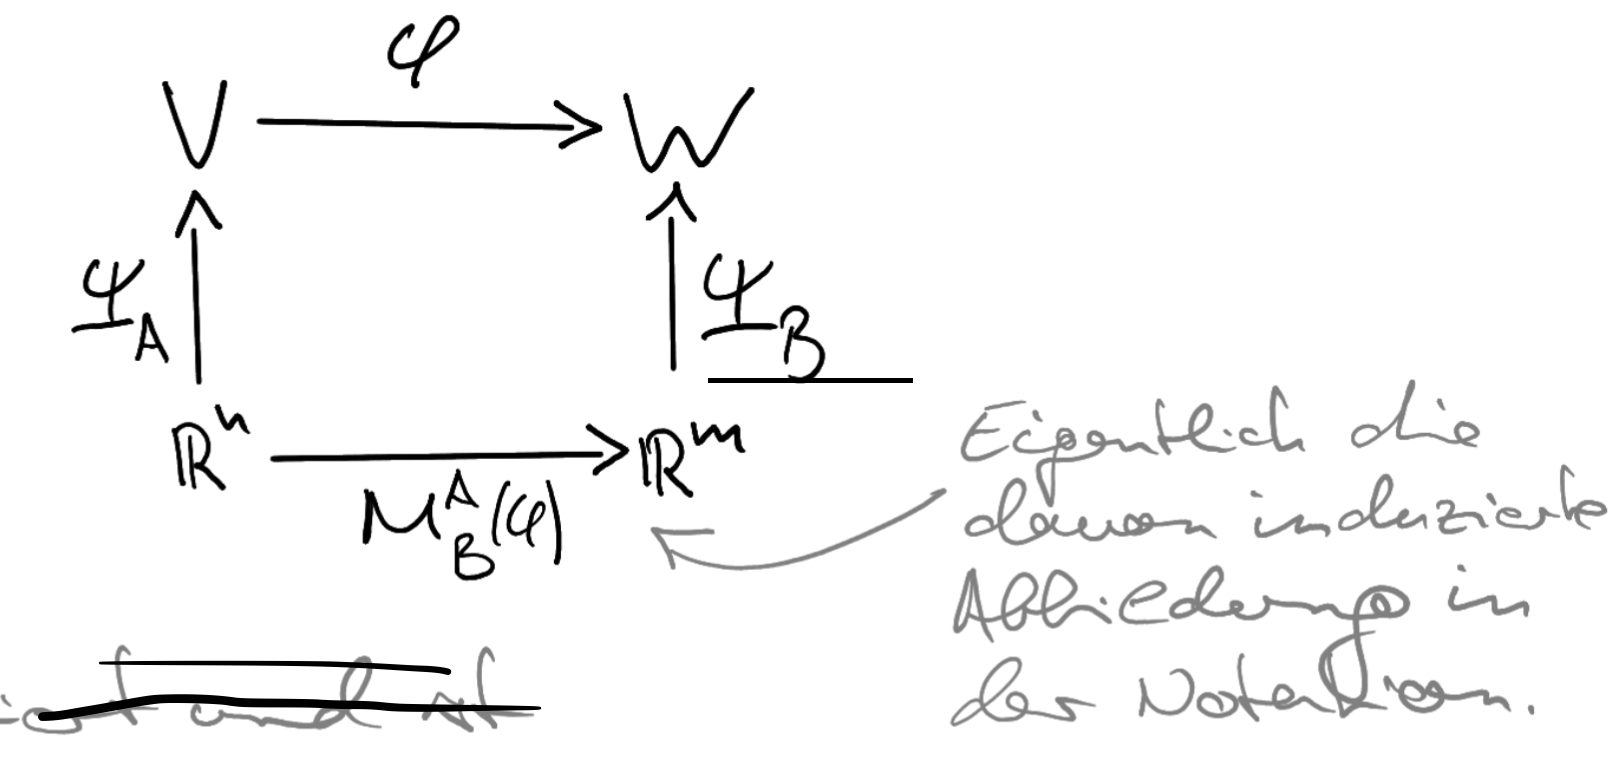 φ
V → W
Ψ_A Ψ_B
ℝⁿ → ℝᵐ
M^A_B(φ)
Eigentlich die
davon induzierte
Abbildung in
der Notation.
und